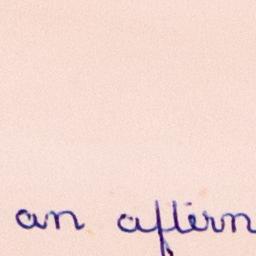 an aftern